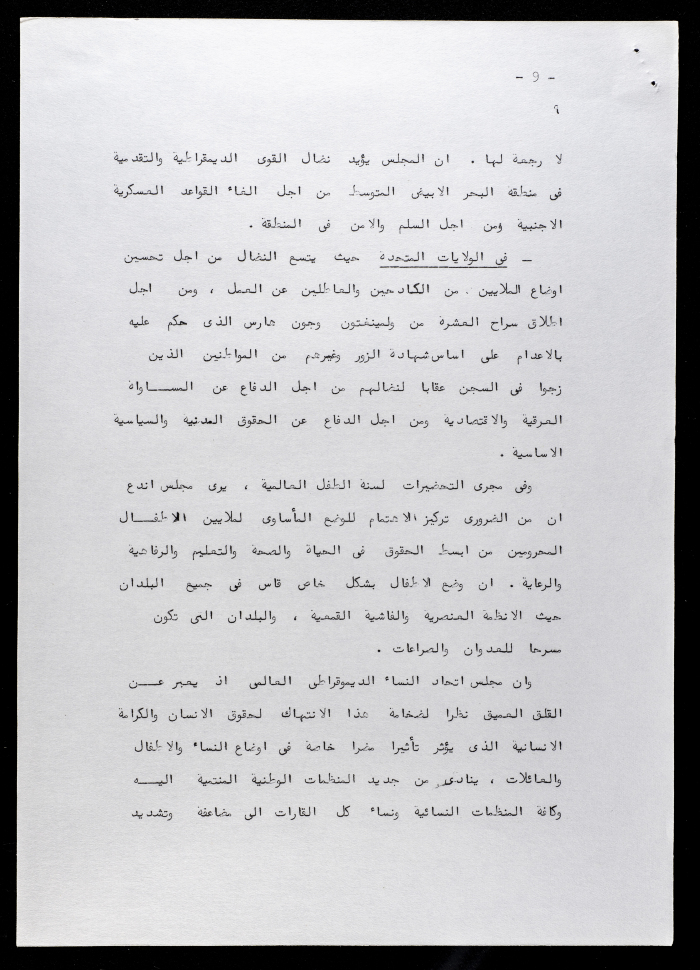 - 9 -
٩
لا رجعة لها . ان المجلس يؤيد نضال القوى الديمقراطية والتقدمية
فى منطقة البحر الابيض المتوسط من اجل الغاء القواعد العسكرية
الاجنبية ومن اجل السلم والامن فى المنطقة .
ـ فى الولايات المتحدة حيث يتسع النضال من اجل تحسين
اوضاع الملايين من الكادحين والعاطلين عن العمل ، ومن اجل
اطلاق سراح العشرة من ولمينغتون وجون هارس الذى حكم عليه
بالاعدام على اساس شهادة الزور وغيرهم من المواطنين الذين
زجوا فى السجن عقابا لنضالهم من اجل الدفاع عن المســاواة
العرقية والاقتصادية ومن اجل الدفاع عن الحقوق المدنية والسياسية
الاساسية .
وفى مجرى التحضيرات لسنة الطفل العالمية ، يرى مجلس اندع
ان من الضرورى تركيز الاهتمام للوضع المأساوى لملايين الاطفــال
المحرومين من ابسط الحقوق فى الحياة والصحة والتعليم والرفاهية
والرعاية . ان وضع الاطفال بشكل خاص قاس فى جميع البلدان
حيث الانظمة العنصرية والفاشية القمعية ، والبلدان التى تكون
مسرحا للعدوان والصراعات .
وان مجلس اتحاد النساء الديموقراطى العالمى اذ يعبر عــن
القلق العميق نظرا لضخامة هذا الانتهاك لحقوق الانسان والكرامة
الانسانية الذى يؤثر تأثيرا مضرا خاصة فى اوضاع النساء والاطفال
والعائلات ، ينادى من جديد المنظمات الوطنية المنتمية اليــه
وكافة المنظمات النسائية ونساء كل القارات الى مضاعفة وتشديد